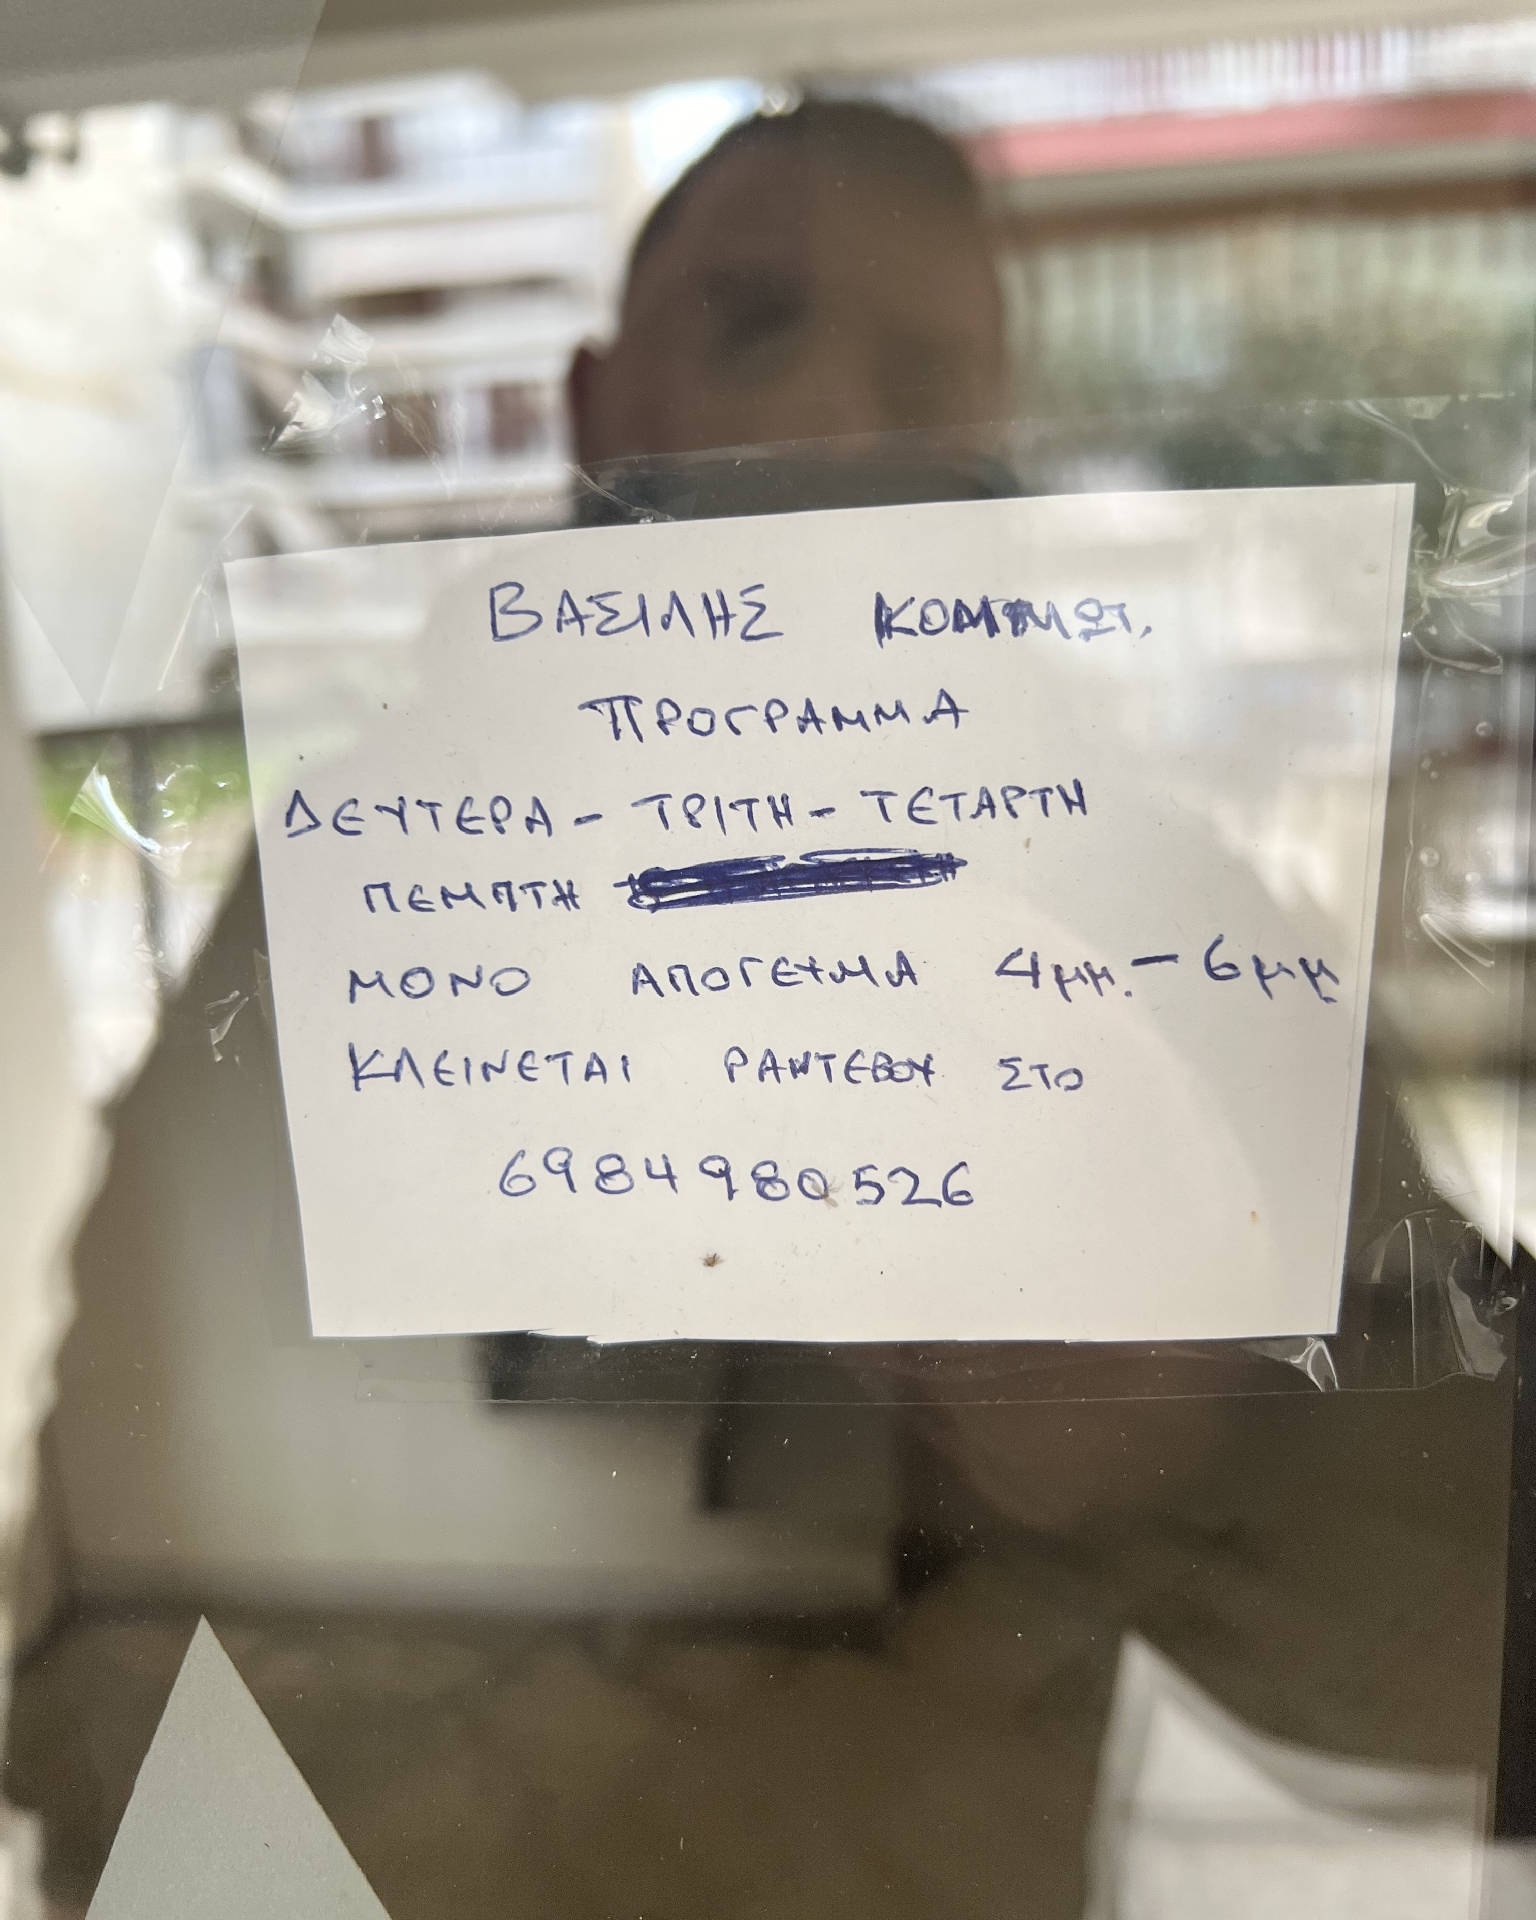 ΒΑΣΙΛΗΣ ΚΟΜΜΩΤ.
ΠΡΟΓΡΑΜΜΑ
ΔΕΥΤΕΡΑ - ΤΡΙΤΗ - ΤΕΤΑΡΤΗ
ΠΕΜΠΤΗ
ΜΟΝΟ ΑΠΟΓΕΥΜΑ 4μμ. - 6μμ
ΚΛΕΙΝΕΤΑΙ ΡΑΝΤΕΒΟΥ ΣΤΟ
6984980526